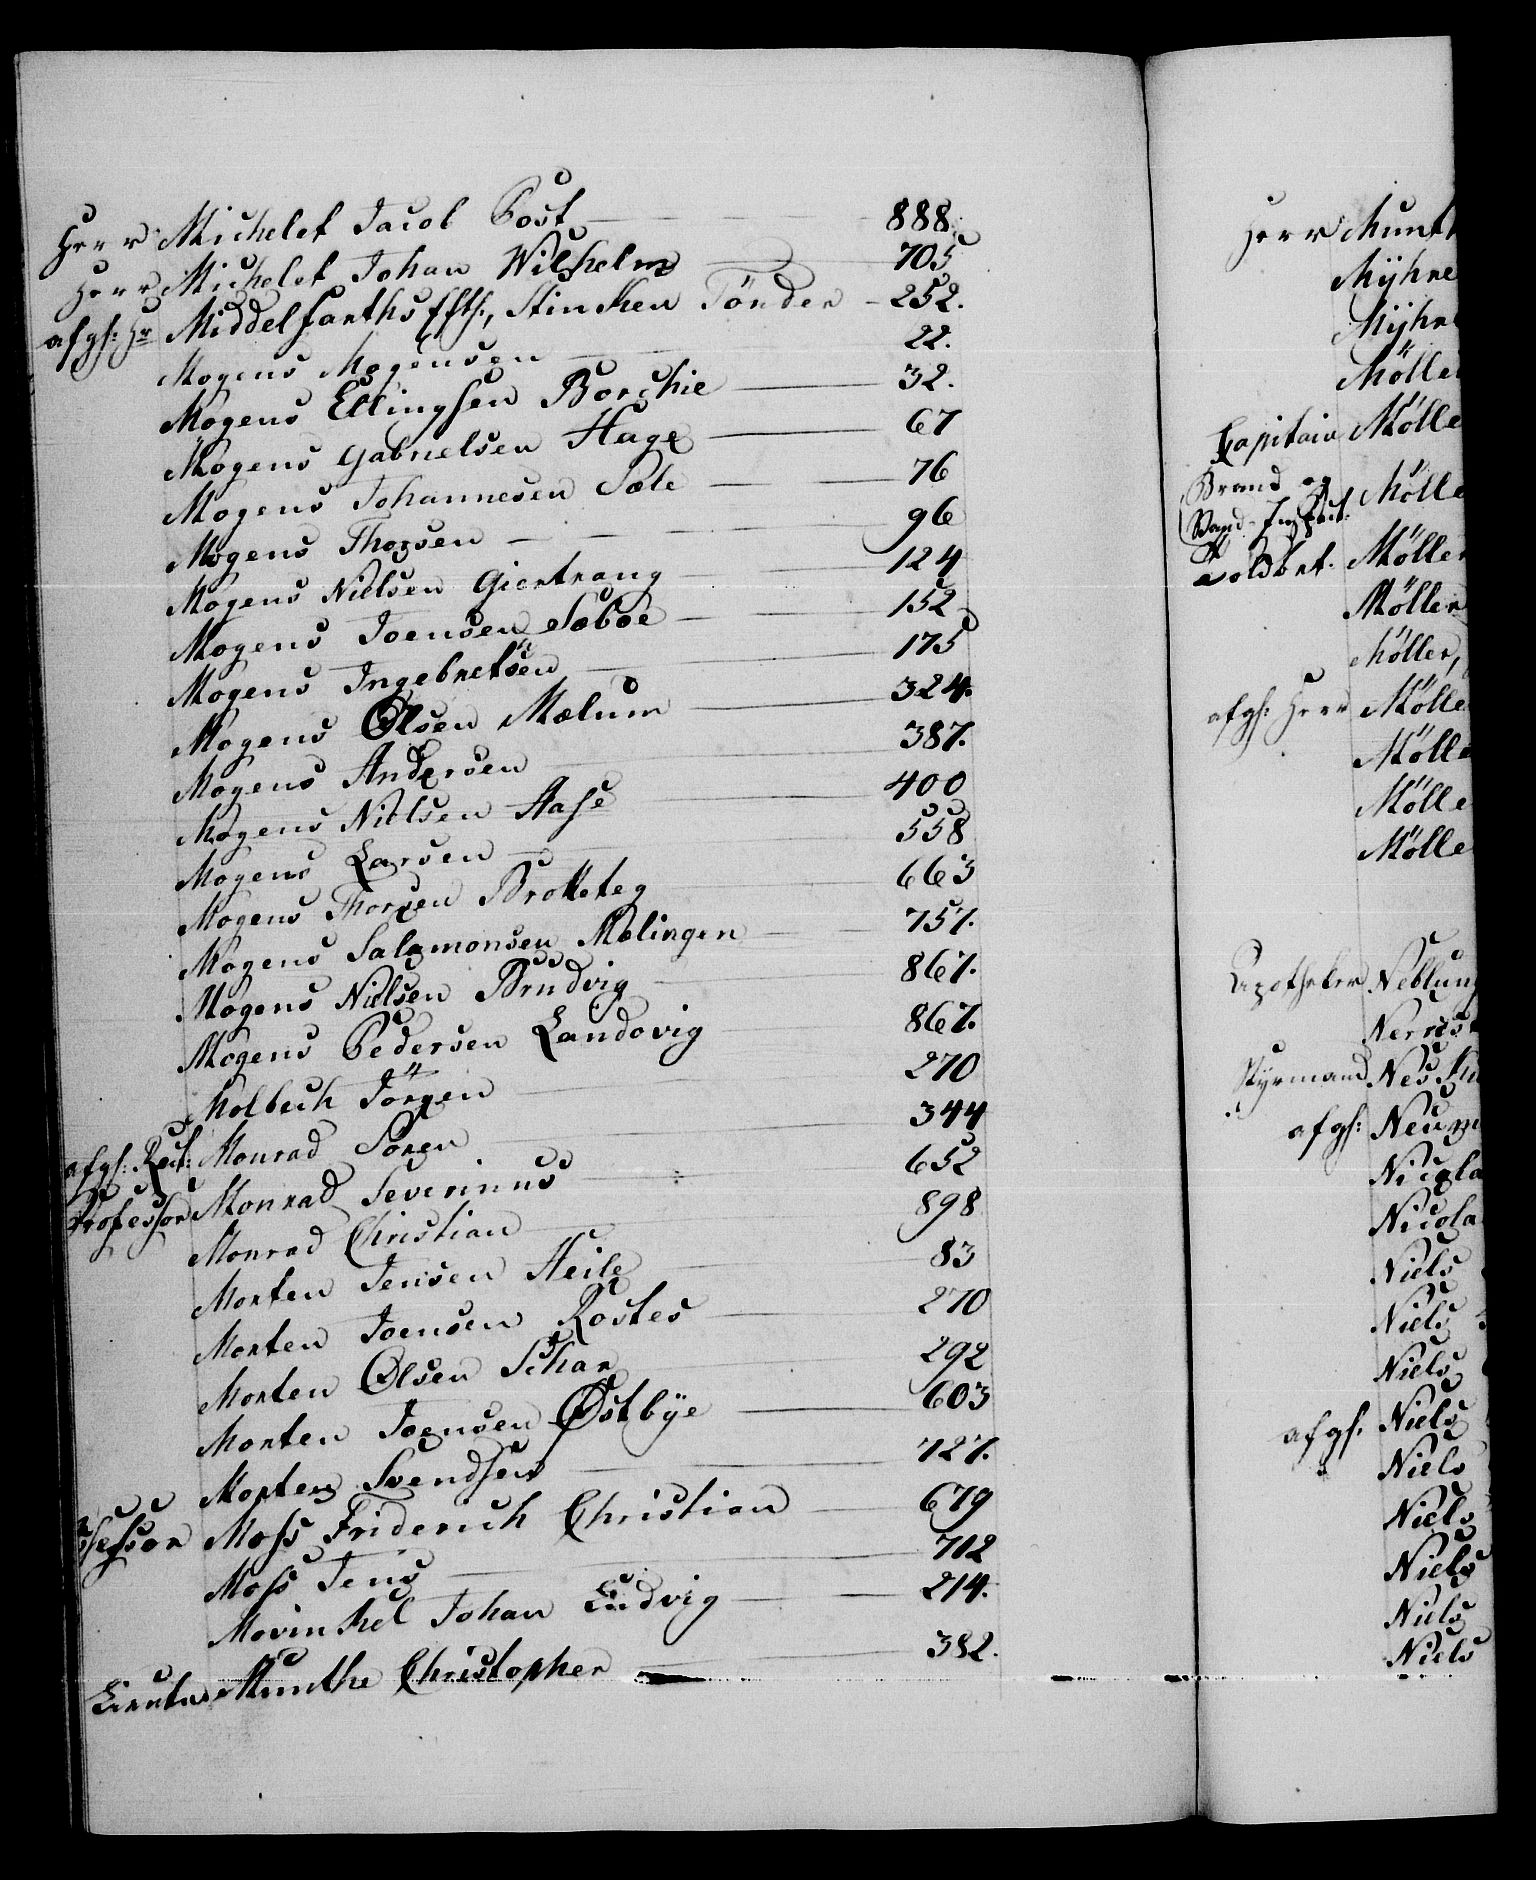 Herr Michelet Jacob Post 888.
Herr Michelet Johan Wilhelm 705
afgh: Hr Middelfarths Efth:, Stincken Tönder 252.
Mogens Mogensen 22.
Mogens Ellingsen Borchie 32.
Mogens Gabrielsen Hage 67
Mogens Johannesen Sole 76
Mogens Thorsen 96
Mogens Nielsen Giertrang 124
Mogens Joensen Sæboe 152
Mogens Ingebretsen 175
Mogens Olsen Mælum 324.
Mogens Andersen 387.
Mogens Nielsen Aase 400
Mogens Larsen 558
Mogens Thorsen Brotteteg 663
Mogens Salomonsen Mælingen 757.
Mogens Nielsen Brudvig 867.
Mogens Pedersen Landovig 867.
Molbech Jörgen 270
afgh: Rect: Monrad Sören 344
Professor Monrad Severinus 652
Monrad Christian 898
Morten Jensen Heile 83
Morten Joensen Rostes 270
Morten Olsen Schar 292
Morten Joensen Østbÿe 603
Morten Svendsen 727.
Moss Friderich Christian 679
Moss Jens 712
Movinckel Johan Ludvig 214.
Munthe Christopher 382.
Herr Munt
Mÿhre
Mÿhr
Mölle
Capitain Mölle
Brand og Mölle
Toldbet. Möller
Möller
Möller,
afgh: Herr Mölle
Mölle
Mölle
Mölle
Apotheker Neblung
Nerris
Styrmand Nes
afgh: Neum
Nicola
Nicola
Niels
Niels
Niels
afgh. Niels
Niels
Niels
Niels
Niels
Niels